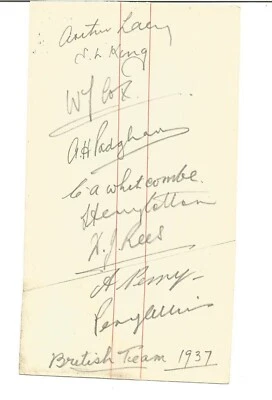 Arthur Lacey
S. L. King
W J Cox
A H Padgham
C a whitcombe.
Henry Cotton
D. J. Rees
A Perry
Percy Alliss
British Team 1937